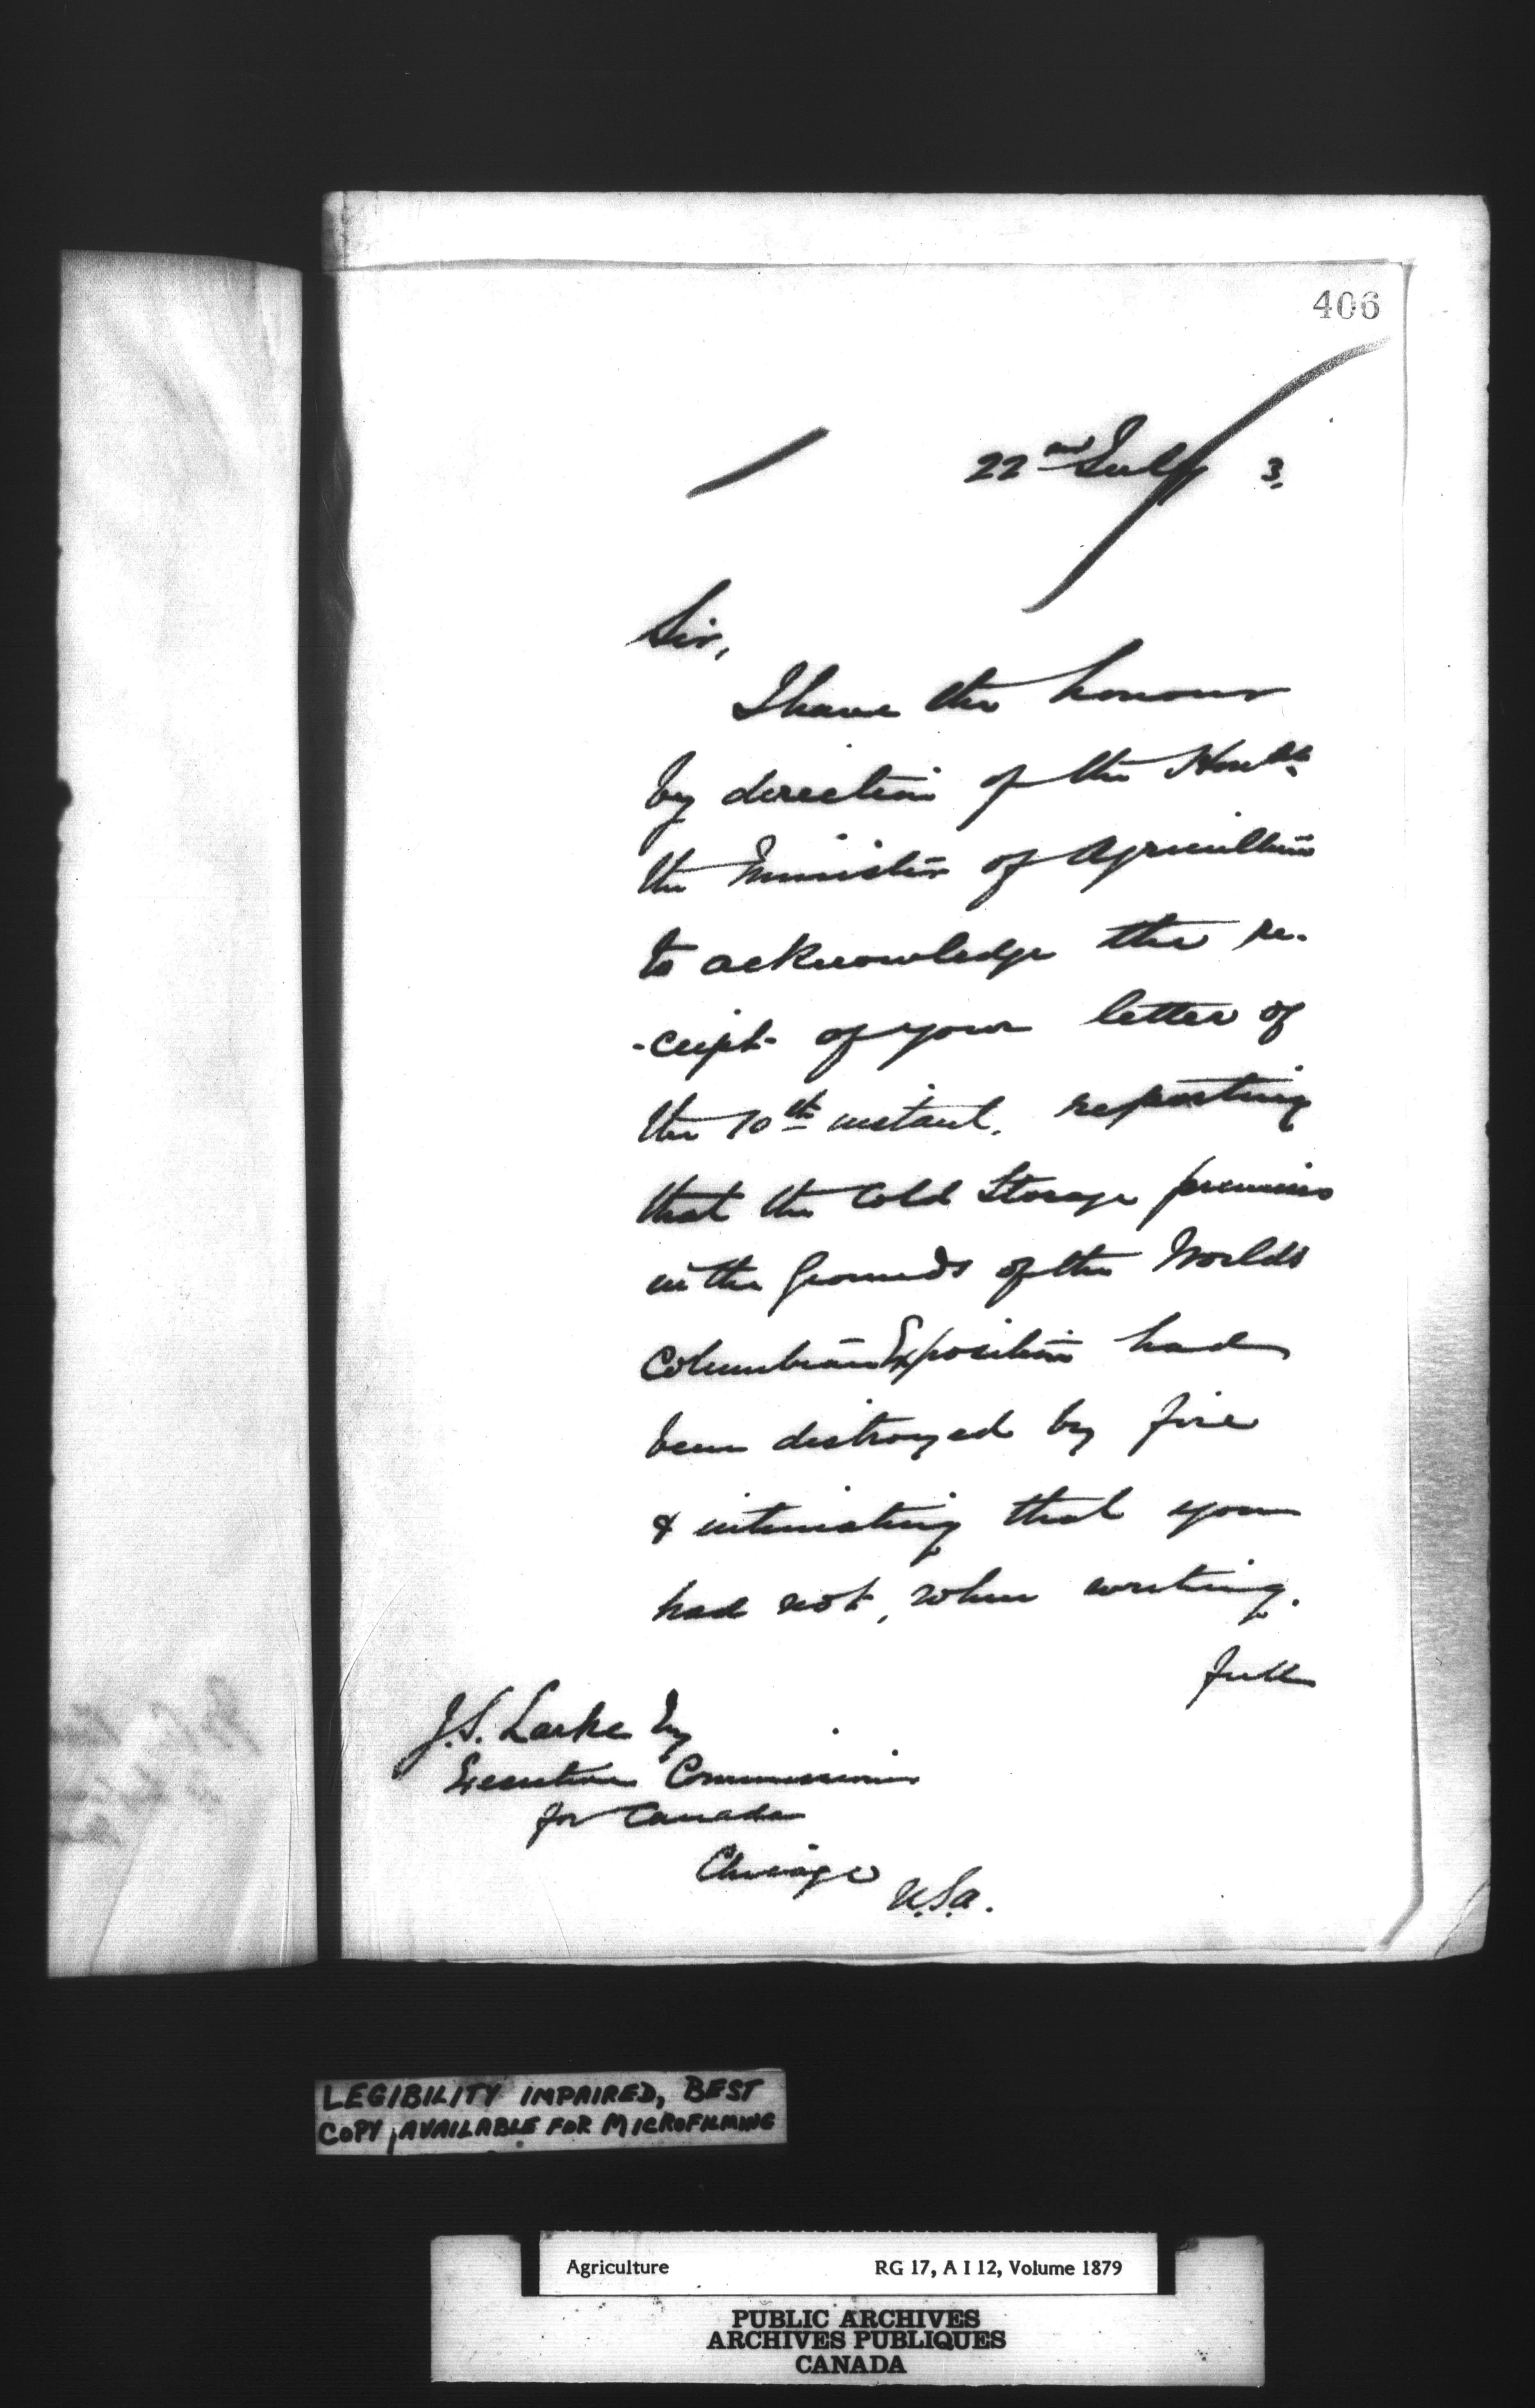 406
22nd July 3.
Sir,
I have the honour
by direction of the Honble
the Minister of Agriculture
to acknowledge the re-
-ceipt of your letter of
the 10th instant, reporting
that the Cold Storage premises
in the Grounds of the Worlds
Columbian Exposition had
been destroyed by fire
& intimating that you
had not, when writing,
full
J.S. Larke Esq
Executive Commissioner
for Canada
Chicago
U.S.A.
LEGIBILITY IMPAIRED, BEST
COPY AVAILABLE FOR MICROFILMING
Agriculture RG 17, A I 12, Volume 1879
PUBLIC ARCHIVES
ARCHIVES PUBLIQUES
CANADA